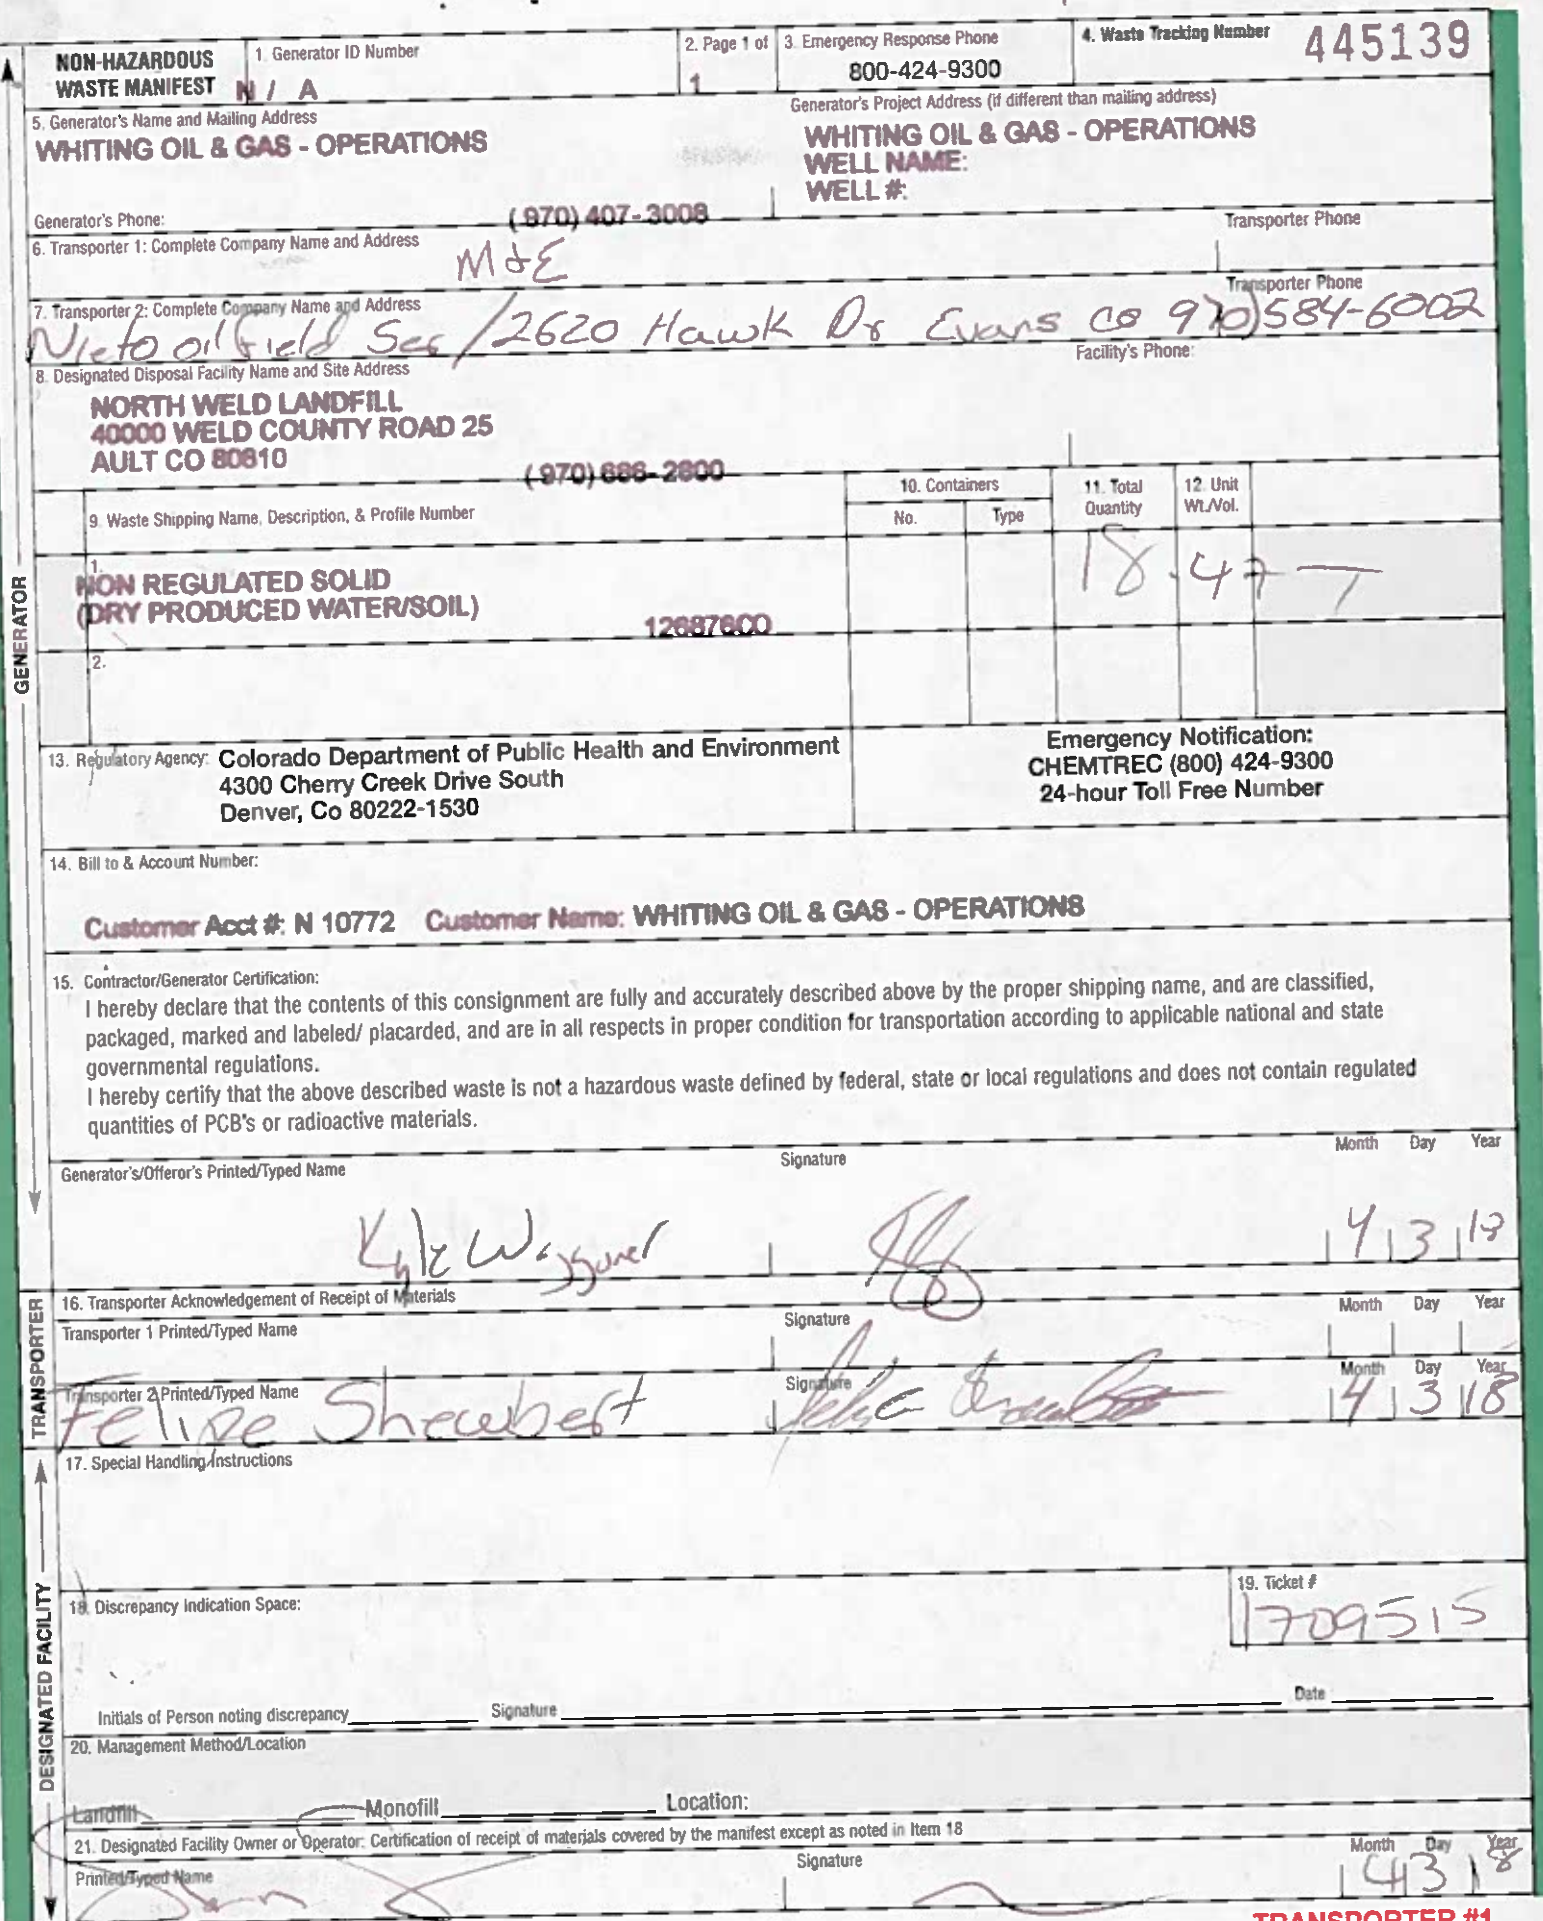 NON-HAZARDOUS WASTE MANIFEST
1. Generator ID Number
N / A
2. Page 1 of
1
3. Emergency Response Phone
800-424-9300
4. Waste Tracking Number
445139
5. Generator's Name and Mailing Address
WHITING OIL & GAS - OPERATIONS
Generator's Project Address (if different than mailing address)
WHITING OIL & GAS - OPERATIONS
WELL NAME:
WELL #:
Generator's Phone: (970) 407-3008
6. Transporter 1: Complete Company Name and Address
Transporter Phone
M&E
7. Transporter 2: Complete Company Name and Address
Transporter Phone
Nieto oil field Ser / 2620 Hawk Dr Evans CO 970)584-6002
8. Designated Disposal Facility Name and Site Address
Facility's Phone:
NORTH WELD LANDFILL
40000 WELD COUNTY ROAD 25
AULT CO 80610
(970) 686-2800
9. Waste Shipping Name, Description, & Profile Number
10. Containers
No.
Type
11. Total Quantity
12. Unit Wt./Vol.
1.
NON REGULATED SOLID
(DRY PRODUCED WATER/SOIL)
12687600
18.47 T
2.
13. Regulatory Agency: Colorado Department of Public Health and Environment
4300 Cherry Creek Drive South
Denver, Co 80222-1530
Emergency Notification:
CHEMTREC (800) 424-9300
24-hour Toll Free Number
14. Bill to & Account Number:
Customer Acct #: N 10772 Customer Name: WHITING OIL & GAS - OPERATIONS
15. Contractor/Generator Certification:
I hereby declare that the contents of this consignment are fully and accurately described above by the proper shipping name, and are classified,
packaged, marked and labeled/ placarded, and are in all respects in proper condition for transportation according to applicable national and state
governmental regulations.
I hereby certify that the above described waste is not a hazardous waste defined by federal, state or local regulations and does not contain regulated
quantities of PCB's or radioactive materials.
Generator's/Offeror's Printed/Typed Name
Signature
Month Day Year
Kyle Waggoner
4 3 18
16. Transporter Acknowledgement of Receipt of Materials
Transporter 1 Printed/Typed Name
Signature
Month Day Year
Transporter 2 Printed/Typed Name
Signature
Month Day Year
Felipe Shewbert
4 3 18
17. Special Handling Instructions
18. Discrepancy Indication Space:
19. Ticket #
1709515
Initials of Person noting discrepancy
Signature
Date
20. Management Method/Location
Landfill
Monofill
Location:
21. Designated Facility Owner or Operator: Certification of receipt of materials covered by the manifest except as noted in Item 18
Printed/Typed Name
Signature
Month Day Year
4 3 18
TRANSPORTER #1
GENERATOR
TRANSPORTER
DESIGNATED FACILITY